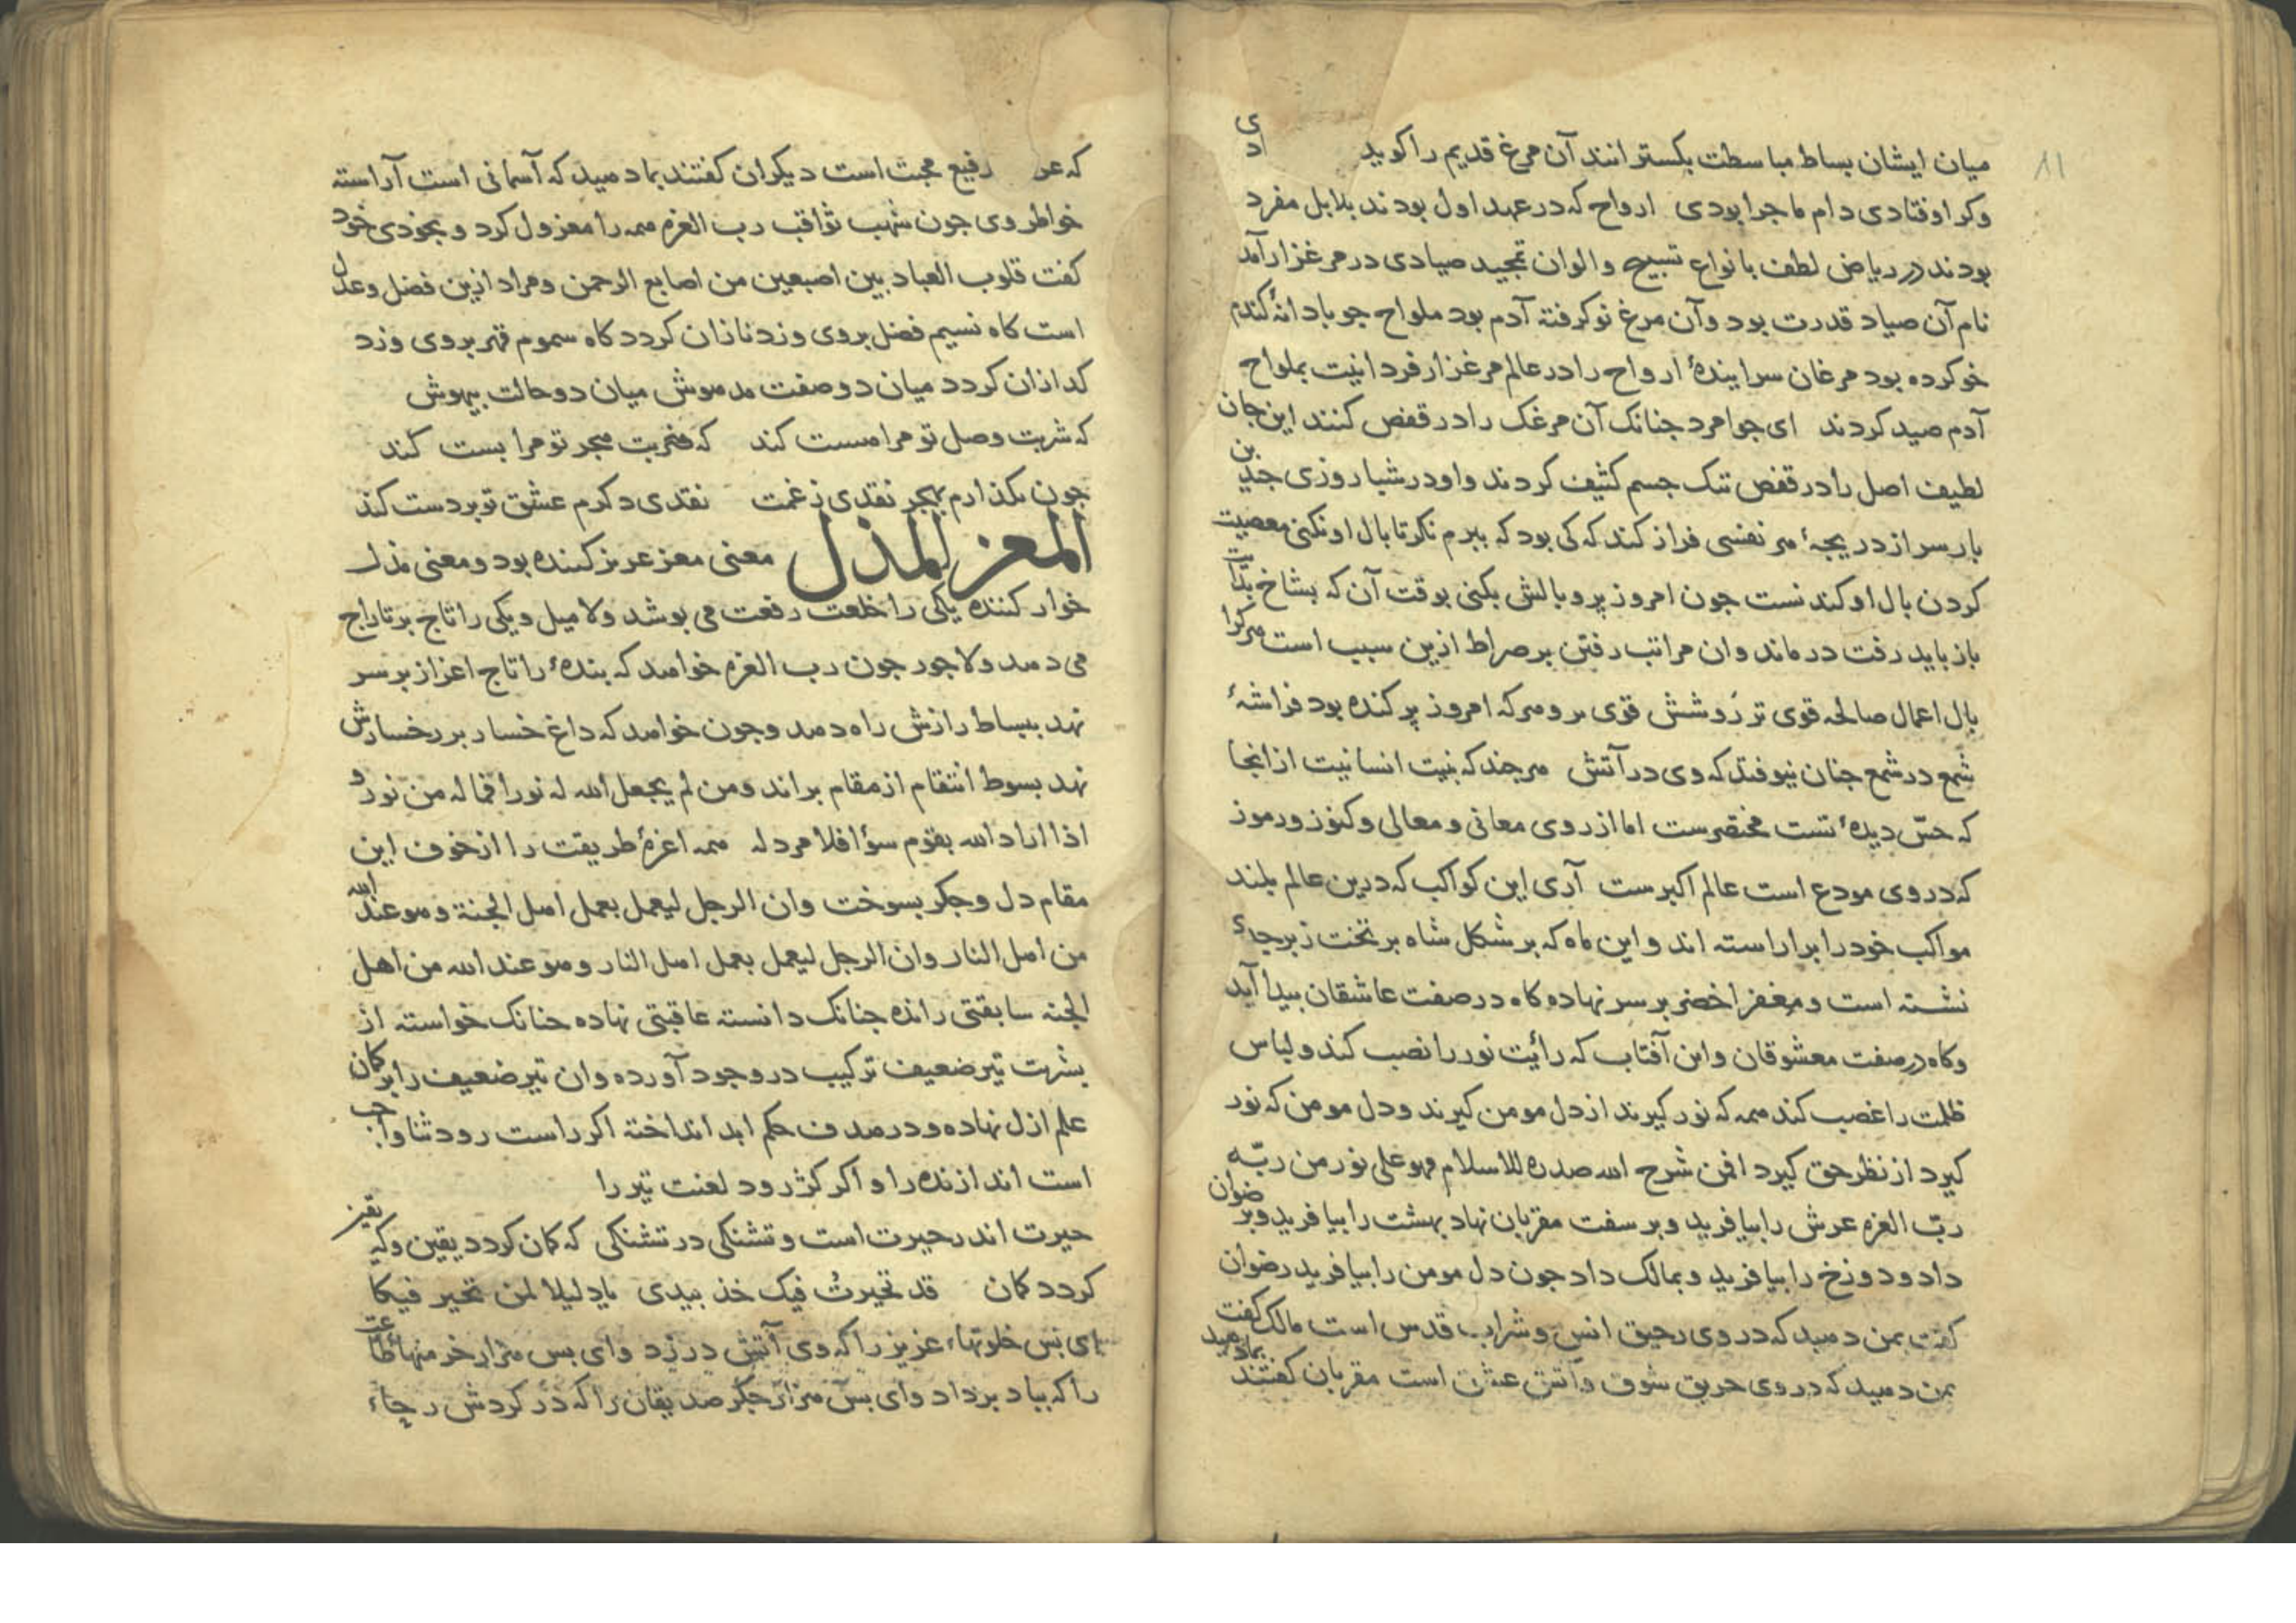 میان ایشان بساط مباسطت بکسترانند آن مرغ قدیم را کوید
وکر اوفتادی دام ماجرا بودی ارواح که در عهد اول بودند بلابل مفرد
بودند در ریاض لطف بانواع تسبیح والوان تمجید صیادی در مرغزار آمد
نام آن صیاد قدرت بود وآن مرغ نوکرفته آدم بود ملواح جو بادانهٔ کندم
خوکرده بود مرغان سرایندهٔ ارواح را در عالم مرغزار فردانیت بملواح
آدم صید کردند ای جوامرد جنانک آن مرغک را در قفص کنند این جان
لطیف اصل را در قفص تنک جسم کثیف کردند واو در شبا روزی جندین
بار سر از دریجهٔ هر نفسی فراز کند که کی بود که ببرم نکر تا بال او نکنی معصیت
کردن بال او کندنست جون امروز پر وبالش بکنی بوقت آن که بشاخ
باز باید رفت درماند وان مراتب رفتن بر صراط ازین سبب است هرکرا
بال اعمال صالحه قوی تر رَوشش قوی تر وهرکه امروز پر کنده بود فراشهٔ
شمع در شمع جنان نیوفتد که وی در آتش هر جند که بنیت انسانیت از انجا
که حسّ دیدهٔ تست مختصرست اما از روی معانی ومعالی وکنوز ورموز
که در وی مودع است عالم اکبرست آری این کواکب که درین عالم بلند
مواکب خود را برآراسته اند واین ماه که بر شکل شاه بر تخت زبرجدی
نشسته است ومغفر اخضر بر سر نهاده کاه در صفت عاشقان بیدا آید
وکاه در صفت معشوقان واین آفتاب که رائیت نور را نصب کند ولباس
ظلمت را غصب کند همه که نور کیرند از دل مومن کیرند ودل مومن که نور
کیرد از نظر حق کیرد افمن شرح الله صدره للاسلام فهو علی نور من ربّه
ربّ العزه عرش را بیافرید وبر سفت مقربان نهاد بهشت را بیافرید وبرضوان
داد ودوزخ را بیافرید وبمالک داد جون دل مومن را بیافرید رضوان
کفت بمن دهید که در وی رحیق انس وشراب قدس است مالک کفت
بمن دهید که در وی حریق شوق وآتش عشق است مقربان کفتند بما دهید
که رفیع محبت است دیکران کفتند بما دهید که آسمانی است آراسته
خواطر وی جون شهب ثواقب رب العزه همه را معزول کرد وبخودی خود
کفت قلوب العباد بین اصبعین من اصابع الرحمن ومراد ازین فضل وعدل
است کاه نسیم فضل بر وی وزد نازان کردد کاه سموم قهر بر وی وزد
کدازان کردد میان دو صفت مدهوش میان دو حالت بیهوش
که شربت وصل تو مرا مست کند که ضربت هجر تو مرا بست کند
جون بکذارم بهجر نقدی زغمت نقدی دکرم عشق تو بر دست کند
المعز المذل معنی معز عزیز کننده بود ومعنی مذل
خوار کننده یکی را خلعت رفعت می بوشد ولا میل ویکی را تاج بر تاراج
می دهد ولا جور جون رب العزه خواهد که بندهٔ را تاج اعزاز بر سر
نهد ببساط رازش راه دهد وجون خواهد که داغ خسار بر رخسارش
نهد بسوط انتقام از مقام براند ومن لم یجعل الله له نورا فما له من نور و
اذا اراد الله بقوم سوٓا فلا مرد له همه اعزهٔ طریقت را از خوف این
مقام دل وجکر بسوخت وان الرجل لیعمل بعمل اهل الجنة وهو عند الله
من اهل النار وان الرجل لیعمل بعمل اهل النار وهو عند الله من اهل
الجنه سابقتی رانده جنانک دانسته عاقبتی نهاده جنانک خواسته از
بشریت تیر ضعیف ترکیب در وجود آورده وان تیر ضعیف را بر کمان
علم ازل نهاده ودر هدف حکم ابد انداخته اکر راست رود ثنا واجب
است اندازنده را واکر کژ رود لعنت تیر را
حیرت اندر حیرت است وتشنکی در تشنکی که کمان کردد یقین وکه یقین
کردد کمان قد تحیرتُ فیک خذ بیدی یا دلیلا لمن تحیر فیکا
ای بس خلوتهاء عزیز را که وی آتش در زد وای بس هزار خرمنهاء طاعت
را که بباد برداد وای بس هزار جکر صدیقان را که در کردش